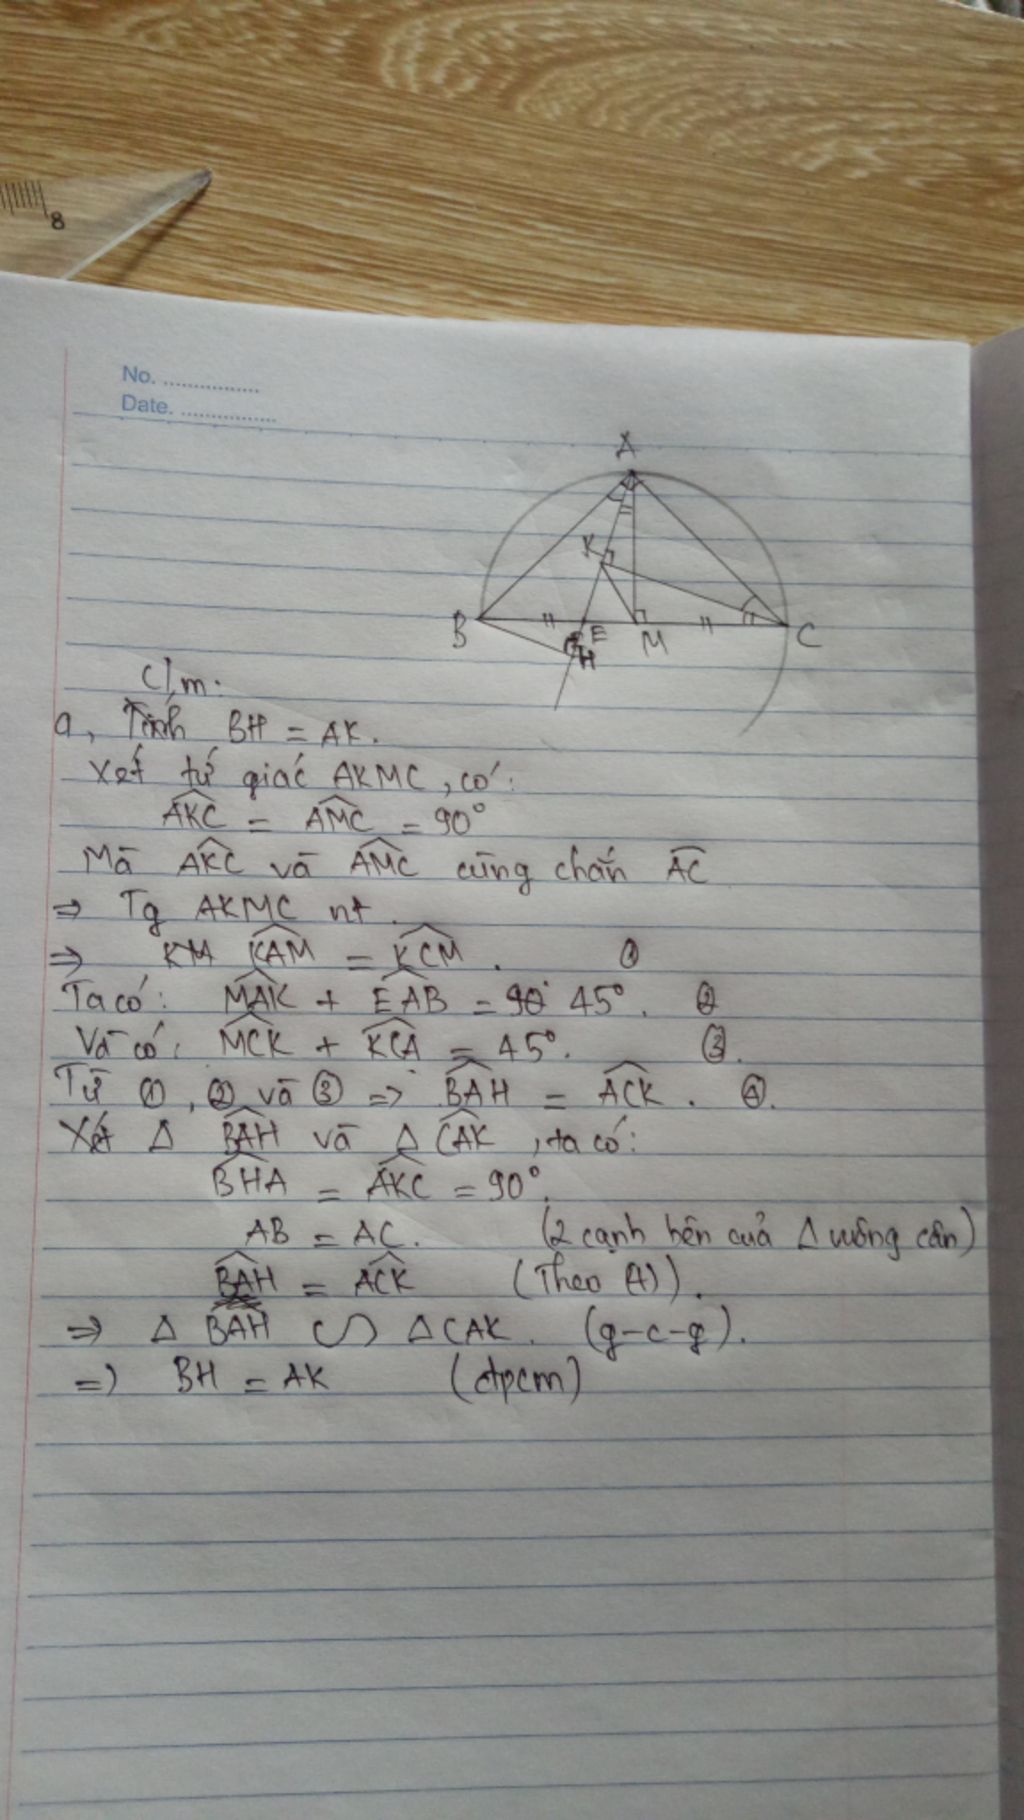 8
No. ................
Date. ................
A
K
B
E
H
M
C
C/m.
a, Tính BH = AK.
Xét tứ giác AKMC, có:
AKC = AMC = 90°
Mà AKC và AMC cùng chắn AC
=> Tg AKMC nt.
=> KM KAM = KCM. ①
Ta có: MAK + EAB = 90° 45°. ②
Và có: MCK + KCA = 45°. ③.
Từ ①, ② và ③ => BAH = ACK. ④.
Xét Δ BAH và Δ CAK, ta có:
BHA = AKC = 90°.
AB = AC. (2 cạnh bên của Δ vuông cân)
BAH = ACK (Theo (4)).
=> Δ BAH ∽ Δ CAK. (g-c-g).
=> BH = AK (đpcm)